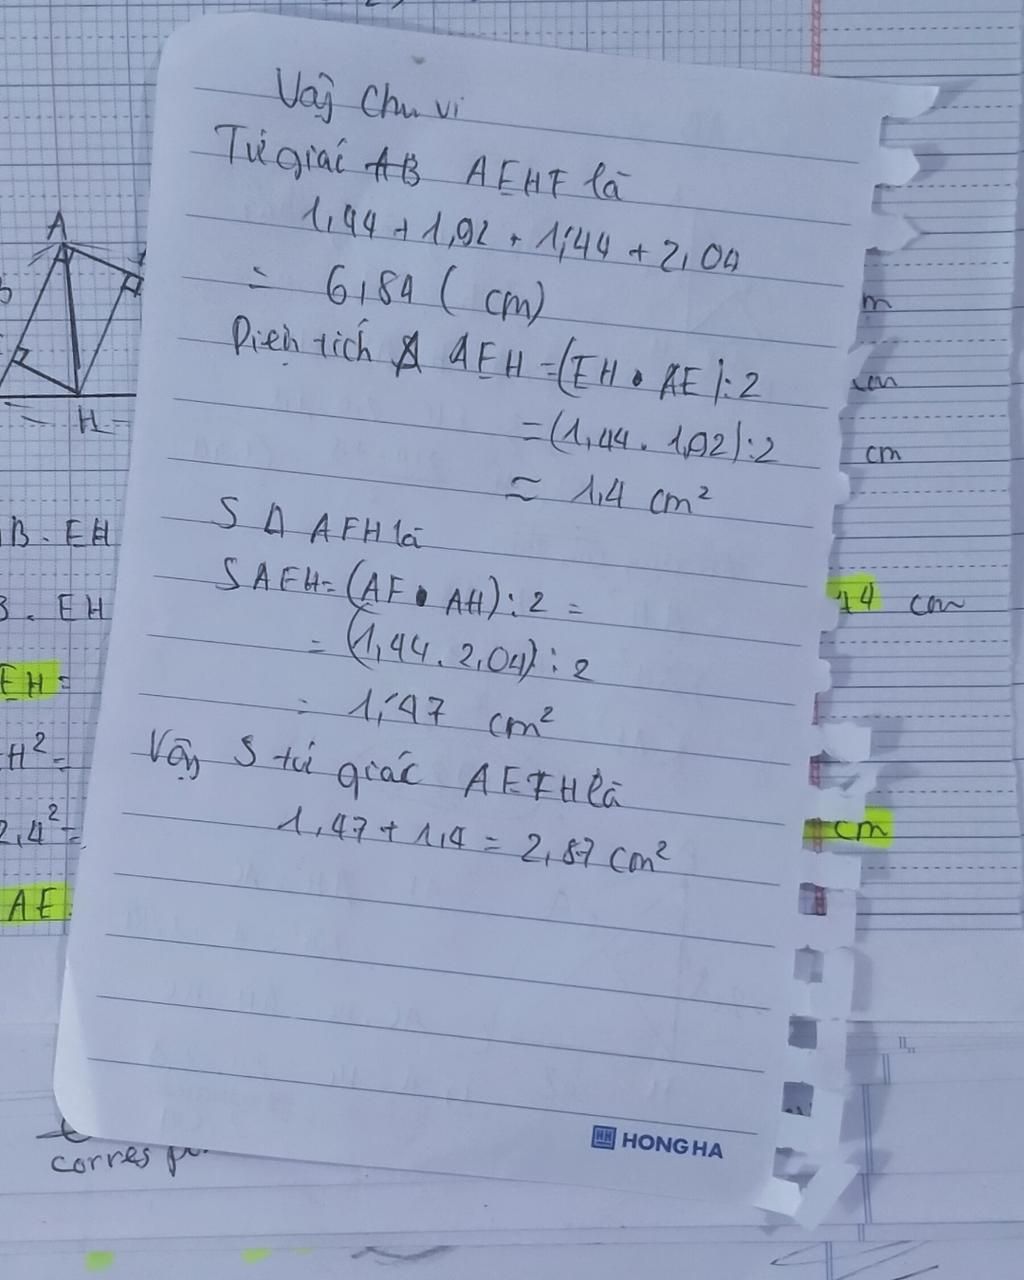 Vậy Chu vi
Tứ giác AB AEHF là
1,44 + 1,92 + 1,44 + 2,04
= 6,84 ( cm)
Diện tích A AEH = (EH . AE) : 2
= (1,44 . 1,92) : 2
≈ 1,4 cm²
S Δ AFH là
SAFH = (AF . AH) : 2 =
= (1,44 . 2,04) : 2
= 1,47 cm²
Vậy S tứ giác AEFH là
1,47 + 1,4 = 2,87 cm²
HH HONG HA
A
H
B . EH
. EH
EH =
H² =
2,4² =
AE
m
cm
cm
14 cm
cm
corresp